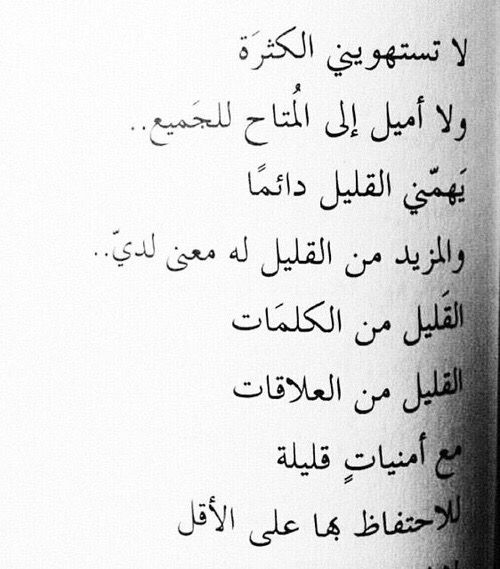 لا تستهويني الكثرَة
ولا أميل إلى المُتاح للجَميع..
يَهمّني القليل دائمًا
والمزيد من القليل له معنى لديّ..
القَليل من الكلمَات
القليل من العلاقات
مع أمنياتٍ قليلة
للاحتفاظ بها على الأقل